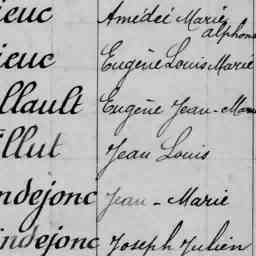 ieuc Amédéé Marie
alphons
ieuc Eugène Louis Marie
llault Eugène Jean-Ma
llut Jean Louis
ndejonc Jean-Marie
indejonc Joseph Julien